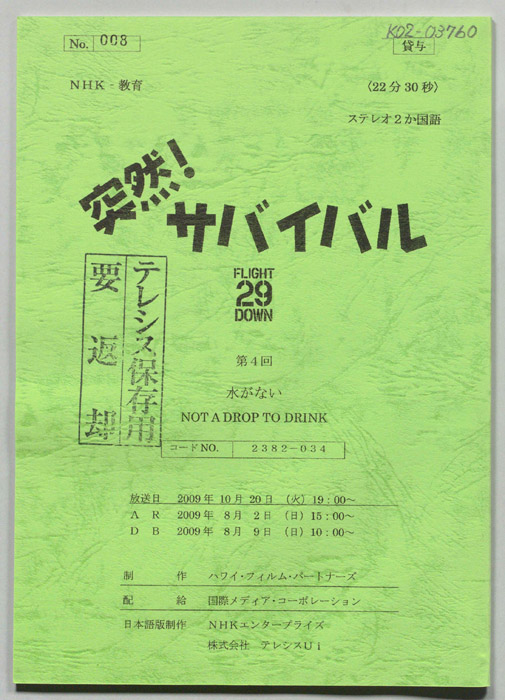 K02-03760
No. 008
貸与
NHK - 教育
〈22分30秒〉
ステレオ2か国語
突然!
サバイバル
FLIGHT
29
DOWN
テレシス保存用
要返却
第4回
水がない
NOT A DROP TO DRINK
コードNO. 2382-034
放送日 2009年 10月 20日 (火) 19:00~
A R 2009年 8月 2日 (日) 15:00~
D B 2009年 8月 9日 (日) 10:00~
制作 ハワイ・フィルム・パートナーズ
配給 国際メディア・コーポレーション
日本語版制作 NHKエンタープライズ
株式会社 テレシスUi